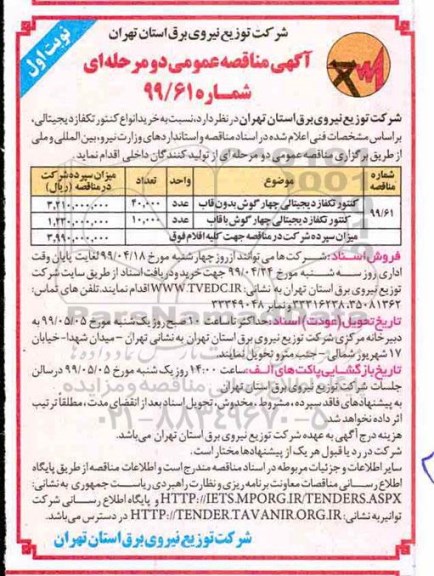 نوبت اول
شرکت توزیع نیروی برق استان تهران
آگهی مناقصه عمومی دو مرحله‌ای
شماره ۹۹/۶۱
شرکت توزیع نیروی برق استان تهران در نظر دارد، نسبت به خرید انواع کنتور تکفاز دیجیتالی،
بر اساس مشخصات فنی اعلام شده در اسناد مناقصه و استانداردهای وزارت نیرو، بین المللی و ملی
از طریق برگزاری مناقصه عمومی دو مرحله ای از تولید کنندگان داخلی اقدام نماید.
شماره مناقصه | موضوع | واحد | تعداد | میزان سپرده شرکت در مناقصه (ریال)
۹۹/۶۱ | کنتور تکفاز دیجیتالی چهار گوش بدون قاب | عدد | ۴۰,۰۰۰ | ۳,۲۱۰,۰۰۰,۰۰۰
کنتور تکفاز دیجیتالی چهار گوش با قاب | عدد | ۱۰,۰۰۰ | ۱,۲۳۰,۰۰۰,۰۰۰
میزان سپرده شرکت در مناقصه جهت کلیه اقلام فوق | ۳,۹۹۰,۰۰۰,۰۰۰
فروش اسناد: شرکت ها می توانند از روز چهار شنبه مورخ ۹۹/۰۴/۱۸ لغایت پایان وقت
اداری روز سه شنبه مورخ ۹۹/۰۴/۲۴ جهت خرید و دریافت اسناد از طریق سایت شرکت
توزیع نیروی برق استان تهران به نشانی: WWW.TVEDC.IR اقدام نمایند. تلفن های تماس:
۳۵۰۸۱۳۶۲، ۳۳۳۱۶۲۳۸ و نمابر ۳۳۳۴۹۰۴۸
تاریخ تحویل (عودت) اسناد: حداکثر تا ساعت ۱۰ صبح روز یک شنبه مورخ ۹۹/۰۵/۰۵ به
دبیرخانه مرکزی شرکت توزیع نیروی برق استان تهران به نشانی تهران - میدان شهدا - خیابان
۱۷ شهریور شمالی - جنب مترو تحویل نمایند.
تاریخ بازگشایی پاکت های الف: ساعت ۱۴:۰۰ روز یک شنبه مورخ ۹۹/۰۵/۰۵ در سالن
جلسات شرکت توزیع نیروی برق استان تهران
به پیشنهادهای فاقد سپرده، مشروط، مخدوش، تحویل اسناد بعد از انقضای مدت، مطلقاً ترتیب
اثر داده نخواهد شد.
هزینه درج آگهی به عهده شرکت توزیع نیروی برق استان تهران می‌باشد.
شرکت در رد یا قبول هر یک از پیشنهادها مختار است.
سایر اطلاعات و جزئیات مربوطه در اسناد مناقصه مندرج است و اطلاعات مناقصه از طریق پایگاه
اطلاع رسانی مناقصات معاونت برنامه ریزی و نظارت راهبردی ریاست جمهوری به نشانی:
HTTP://IETS.MPORG.IR/TENDERS.ASPX و پایگاه اطلاع رسانی شرکت
توانیر به نشانی: HTTP://TENDER.TAVANIR.ORG.IR در دسترس می باشد.
شرکت توزیع نیروی برق استان تهران
۰۲۱-۸۸۳۴۹۶۷۰-۵